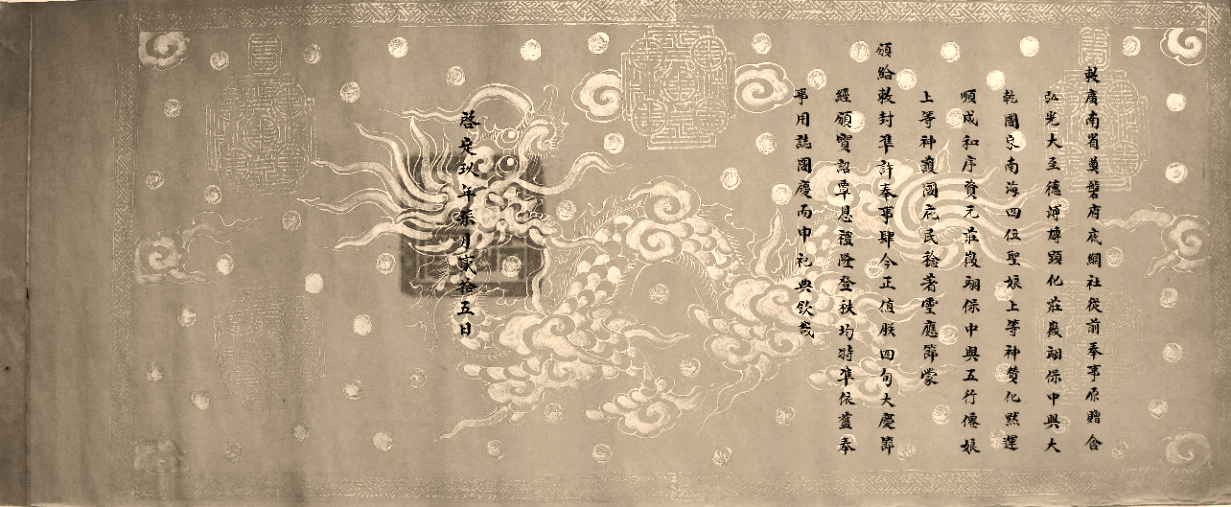 敕廣南省奠磐府底網社從前奉事原贈含
弘光大至德溥博顯化莊嚴翊保中興大
乾國家南海四位聖娘上等神贊化默運
順成和序資元莊嚴翊保中興五行僊娘
上等神護國庇民稔著靈應節蒙
頒給敕封準許奉事肆今正值朕四旬大慶節
經頒寶詔覃恩禮隆登秩均特準依舊奉
事用誌國慶而申祀典欽哉
啓定玖年柒月貳拾五日